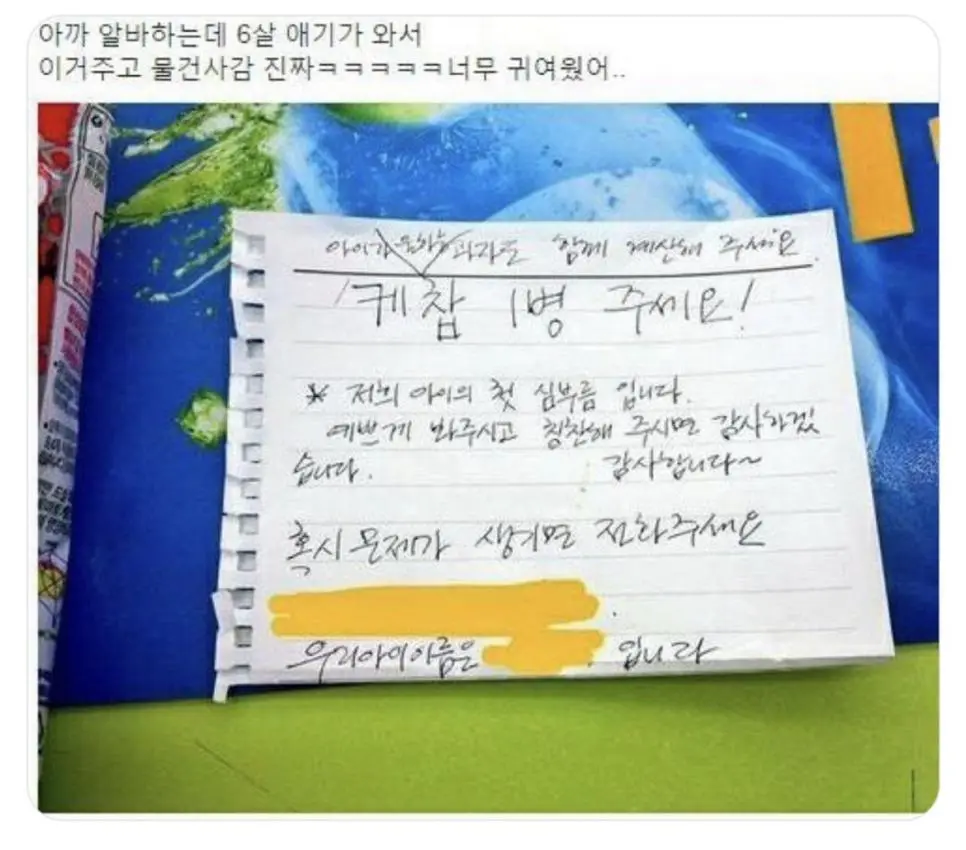 아까 알바하는데 6살 애기가 와서
이거주고 물건사감 진짜ㅋㅋㅋㅋㅋ너무 귀여웠어..
아이가 원하는 과자도 함께 계산해 주세요.
케찹 1병 주세요!
* 저희 아이의 첫 심부름 입니다.
예쁘게 봐주시고 칭찬해 주시면 감사하겠
습니다. 감사합니다~
혹시 문제가 생기면 전화주세요
우리아이이름은 입니다